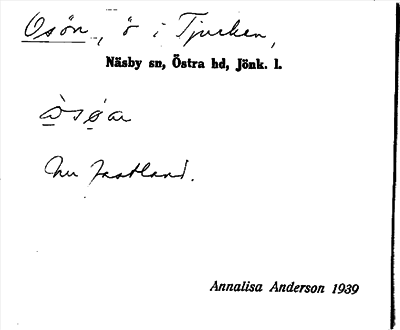 Osön, ö i Tjurken,
Näsby sn, Östra hd, Jönk. l.
òsø̀ar
Nu fastland.
Annalisa Anderson 1939